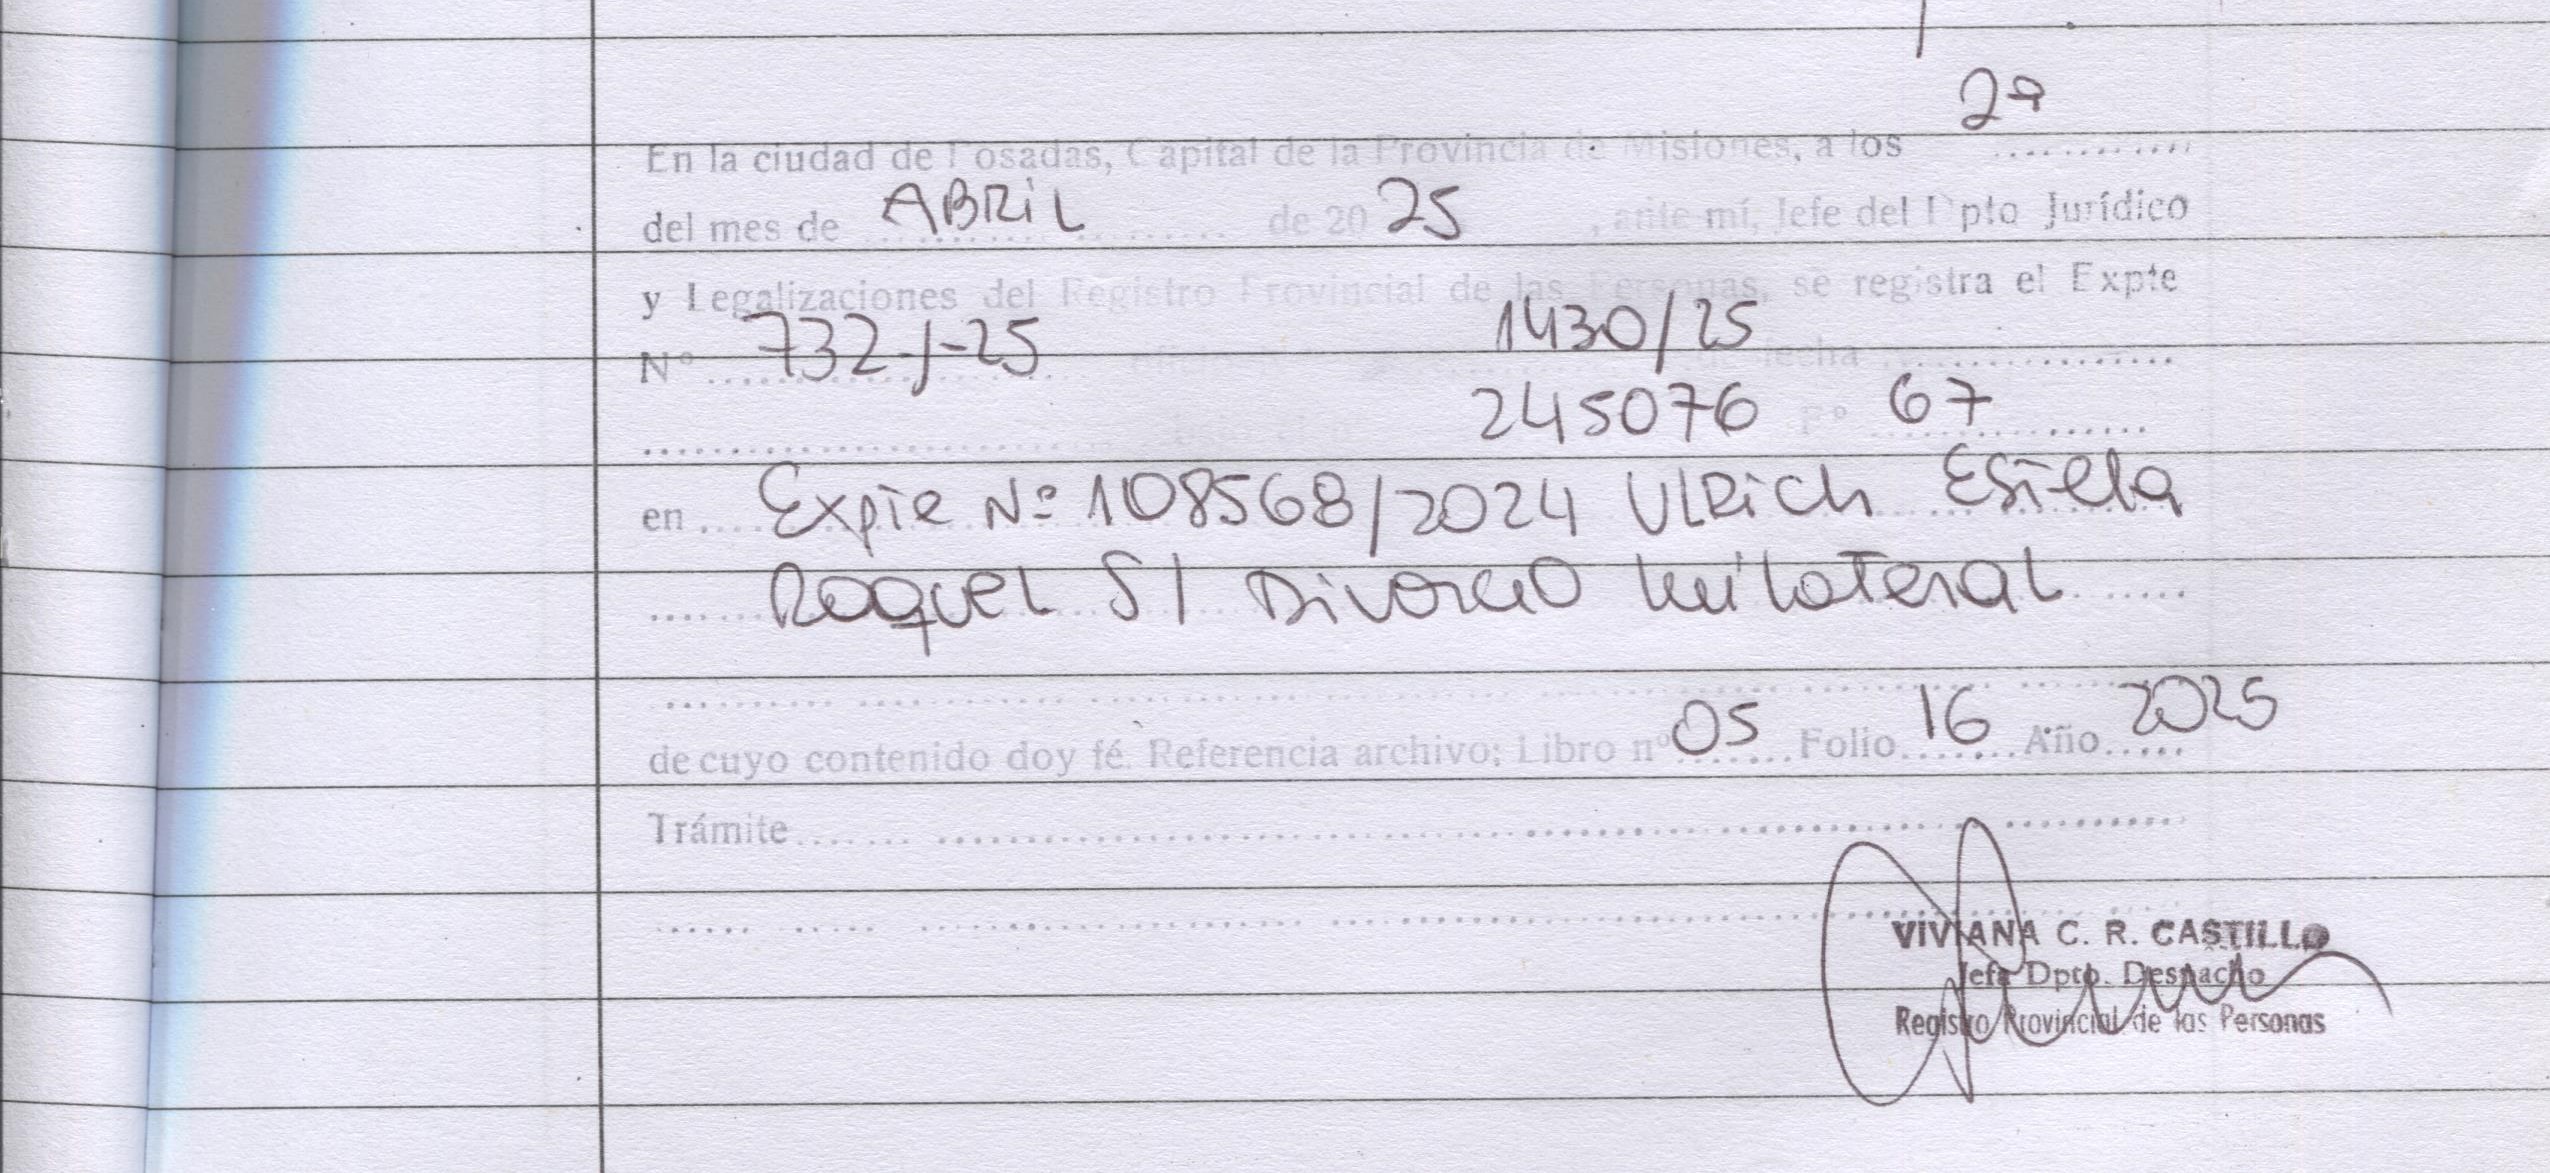 29
En la ciudad de Posadas, Capital de la Provincia de Misiones, a los ............
del mes de ABRIL de 20 25, ante mí, Jefe del Dpto Jurídico
y Legalizaciones del Registro Provincial de las Personas, se registra el Expte
Nº 732-J-25 1430/25 de fecha ............
245076 Fº 67
en Expte Nº 108568/2024 Ulrich Estela
Raquel S/ Divorcio Unilateral
de cuyo contenido doy fé. Referencia archivo; Libro nº 05 Folio 16 Año 2025
Trámite ............
VIVIANA C. R. CASTILLO
Jefa Dpto. Despacho
Registro Provincial de las Personas